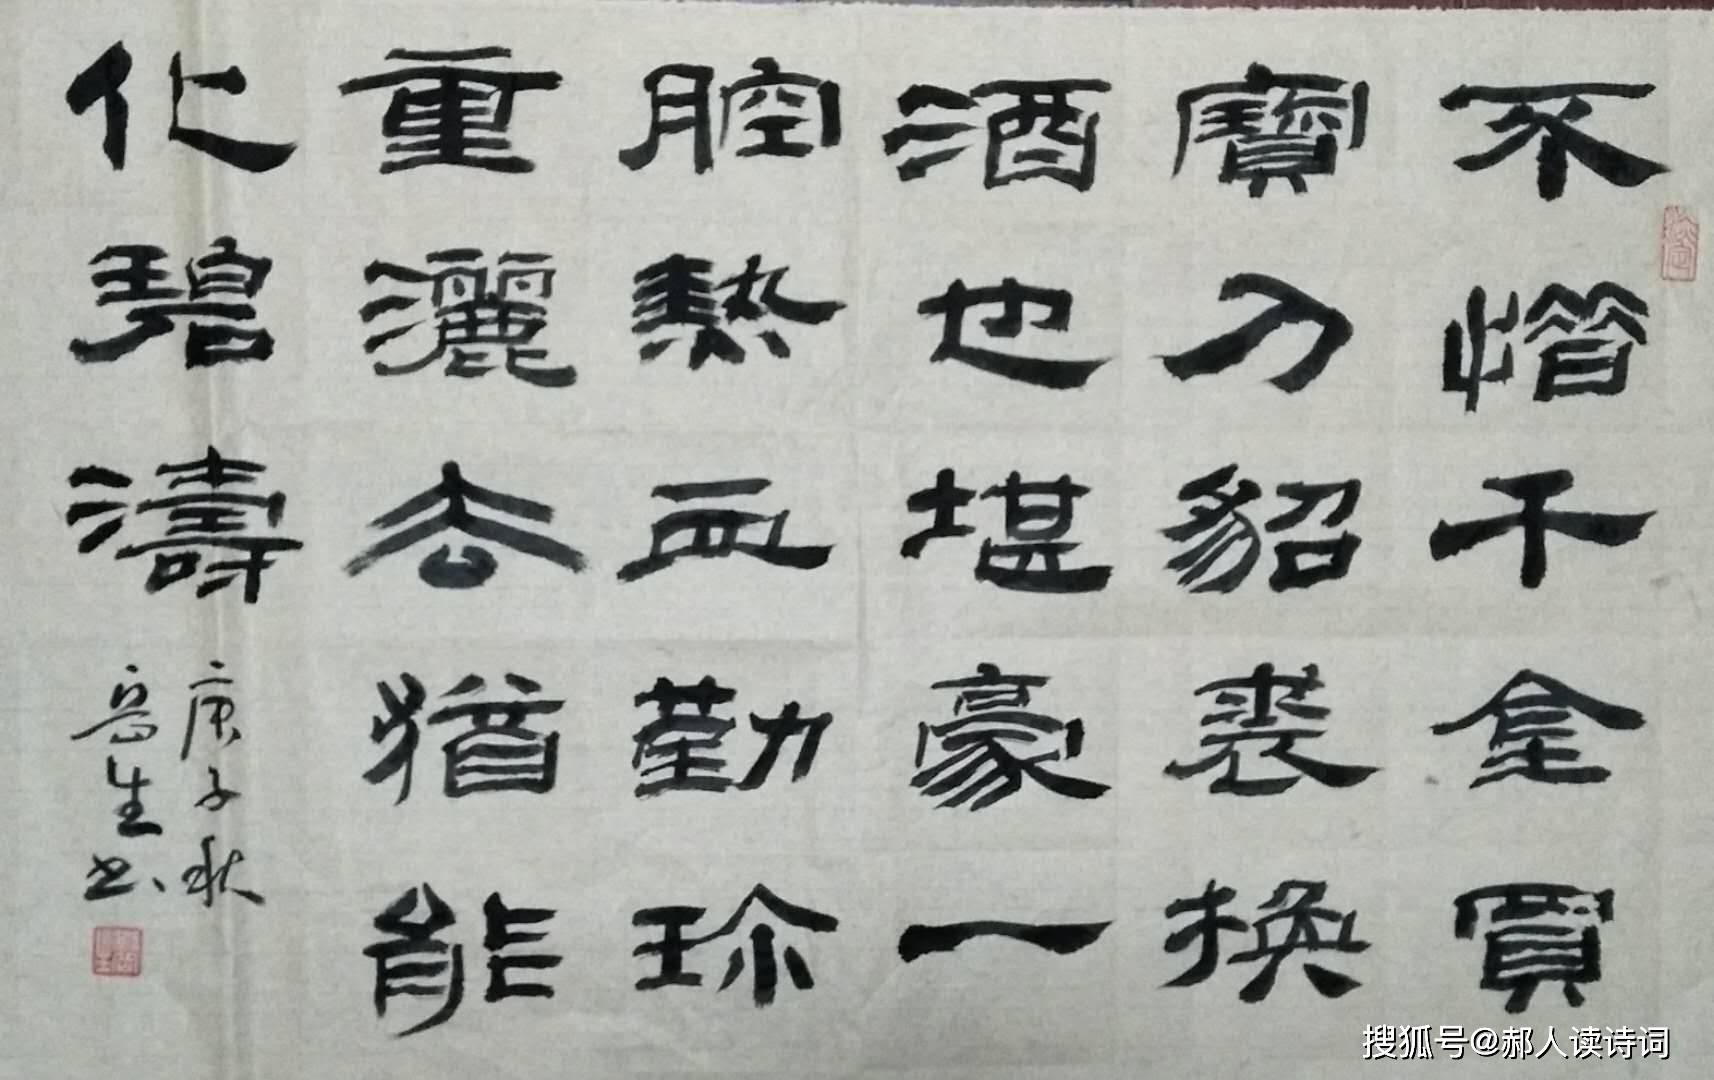 不惜千金買
寶刀貂裘換
酒也堪豪一
腔熱血勤珍
重灑去猶能
化碧濤
庚子秋
生书
搜狐号@郝人读诗词